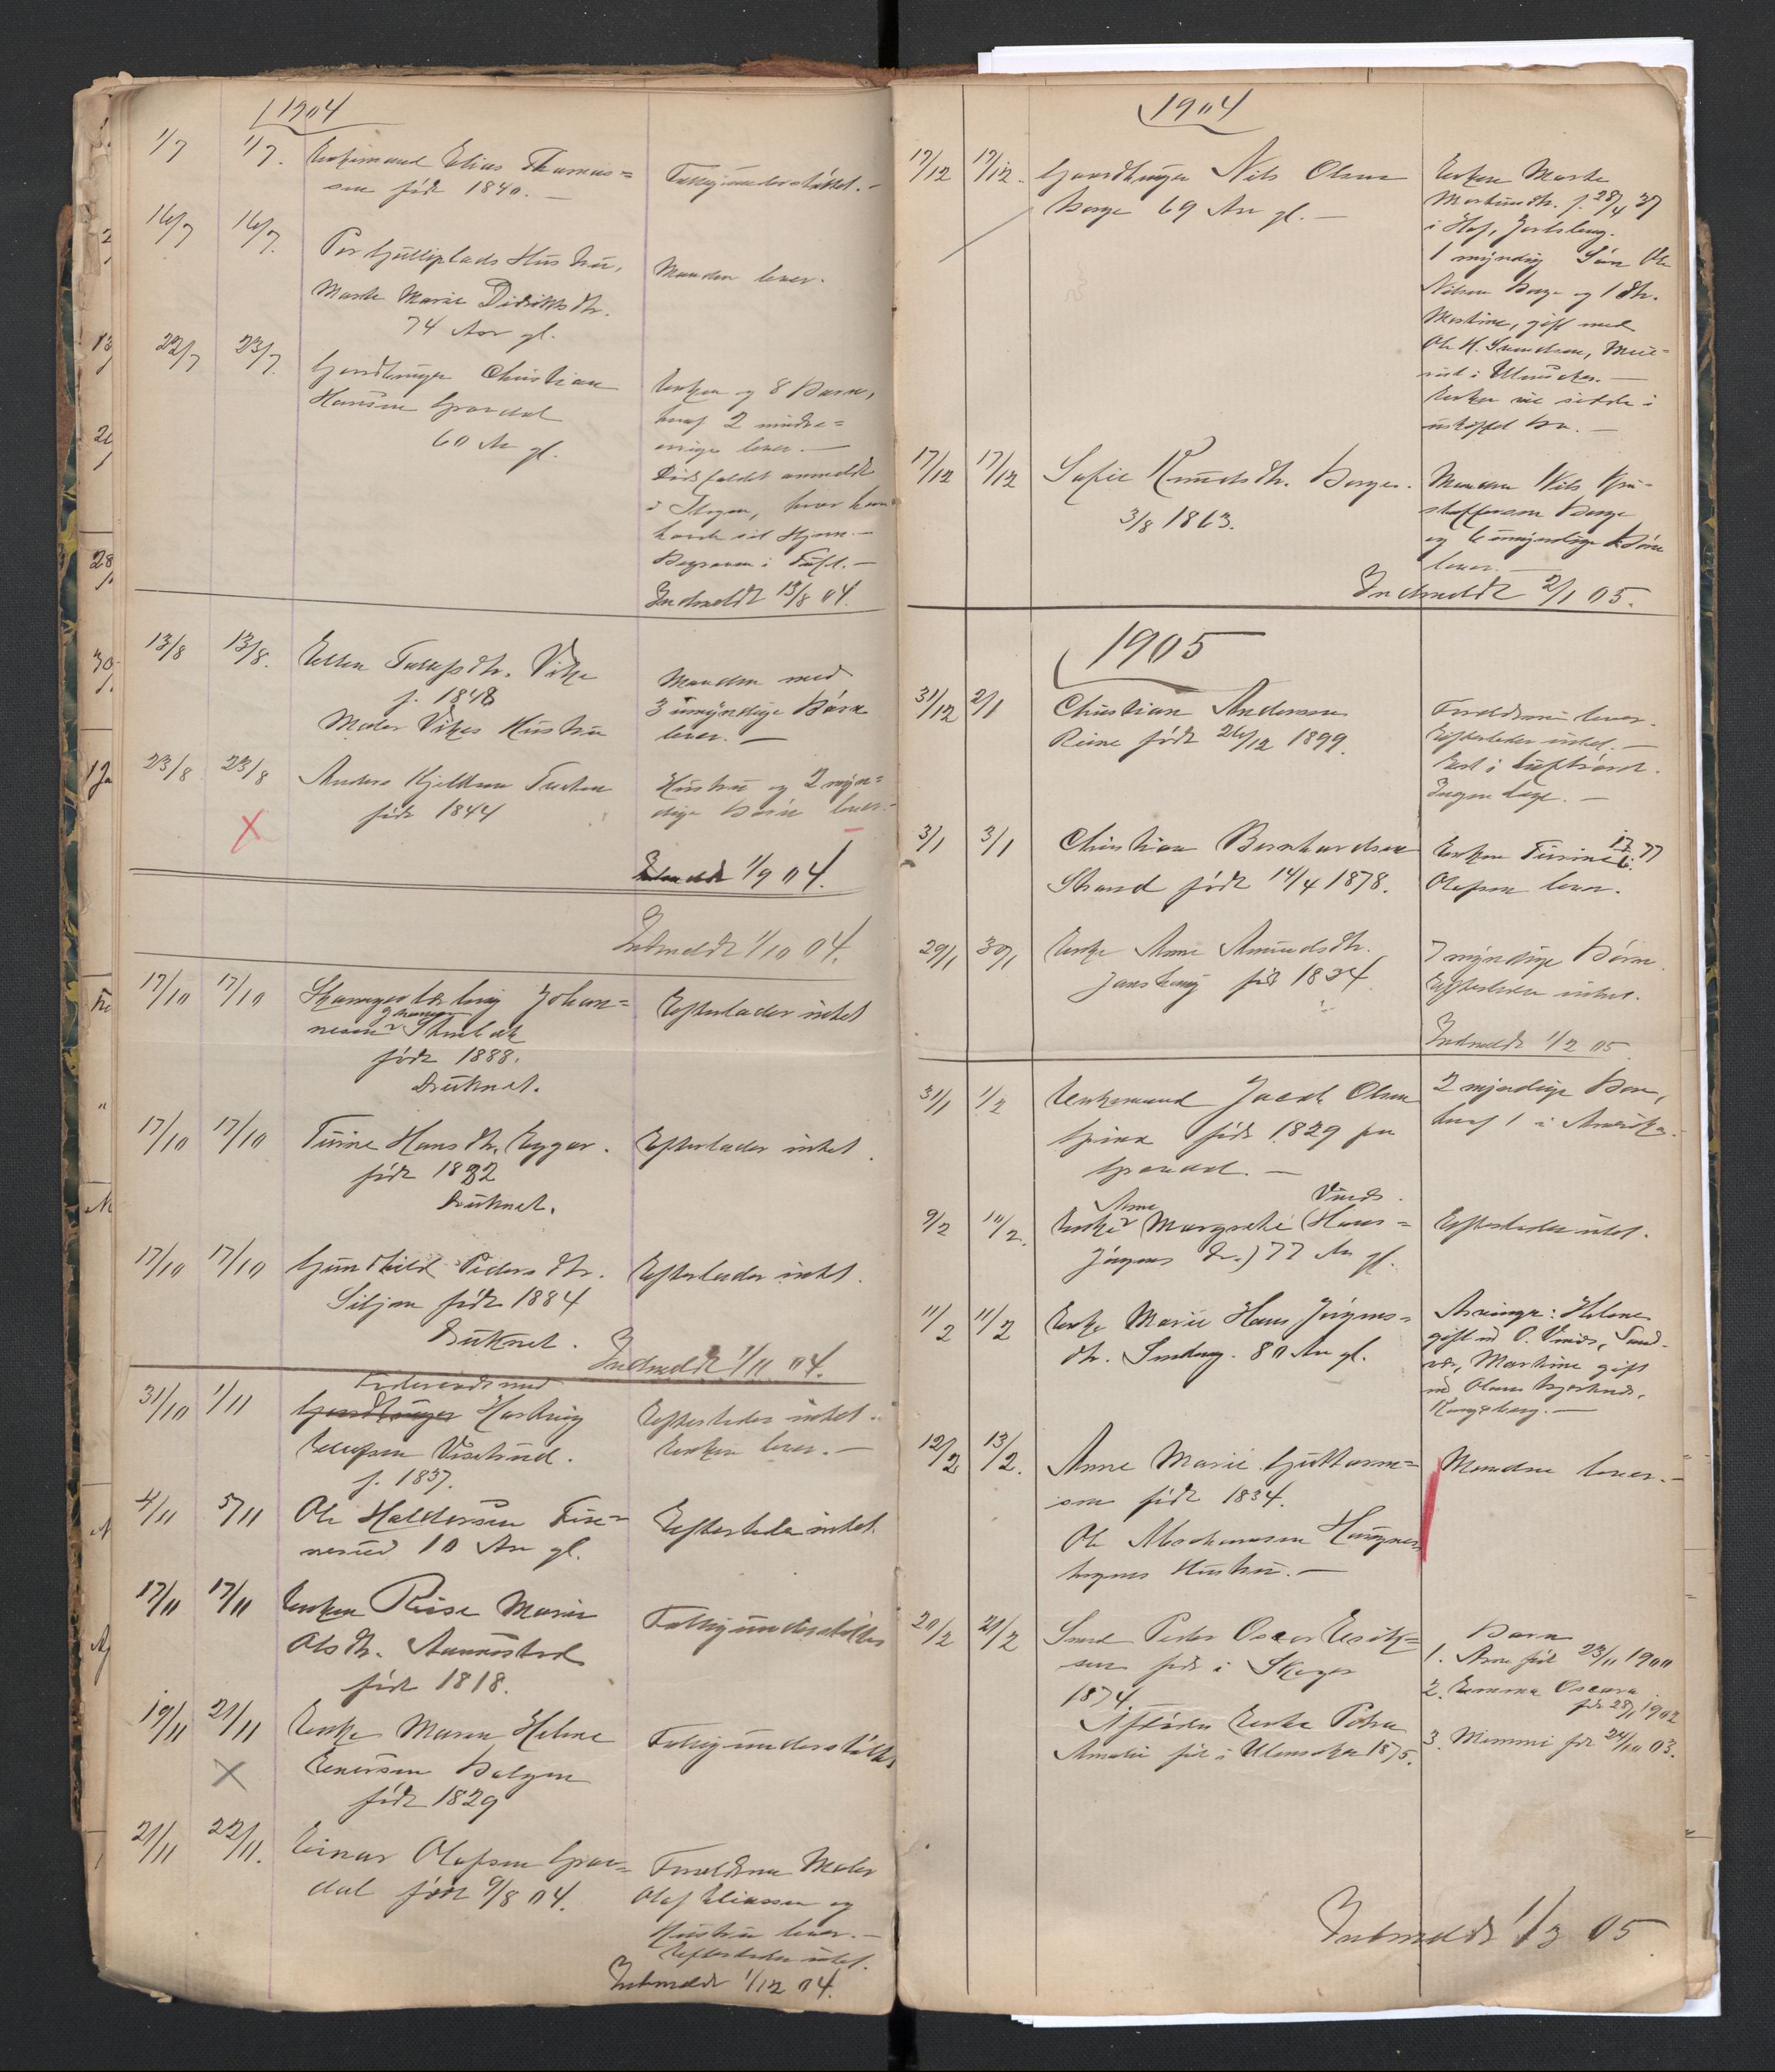 1904
1/7 1/7. Enkemand Elias Thomas=
sen født 1840. — Fattigunderstøttet. —
16/7 16/7. Per Gulliplads Hustru,
Marte Marie Didriksdtr. Manden lever.
74 Aar gl.
22/7 23/7. Gaardbruger Christian
Hansen Grandal
60 Aar gl.
Enken og 8 Børn,
hvoraf 2 mindre=
aarige lever. —
Dødsfaldet anmeldt
i Skogen, hvor han
havde sit Hjem. —
Begraven i Tuft. —
Indmeldt 13/8 04.
13/8 13/8. Ellen Tulufsdtr. Vike
f. 1848
Mads Vikes Hustru
Manden med
3 umyndige Børn
lever. —
23/8 23/8 Anders Kjeldsen Tveten
født 1844
Hustru og 2 myn=
dige Børn lever. —
X
Indmeldt 1/9 04.
Indmeldt 1/10 04.
17/10 17/10 Skomagerlærling Johan=
nesen Stenbæk
født 1888.
Druknet.
Efterlader intet
17/10 17/10 Turine Hansdtr. Rygar.
født 1882
Druknet.
Efterlader intet.
17/10 17/10 Gunhild Pedersdtr.
Siljan født 1884
Druknet.
Efterlader intet.
Indmeldt 1/11 04.
31/10 1/11 Føderaadsmand
Gaardbruger Hartvig
Ellefsen Viselrud.
f. 1837.
Efterlader intet.
Enken lever. —
4/11 5/11 Ole Haldorsen Fin=
nerud 10 Aar gl.
Efterlader intet.
17/11 17/11 Enken Rise Marie
Olsdtr.
født 1818.
Fattigunderstøttet
19/11 21/11 Enke Maren Helene
Enersen Bolgen
født 1829
Fattigunderstøttet
X
21/11 22/11. Einar Olafsen Gran=
dal født 9/8 04.
Forældrene Maler
Olaf Eliassen og
Hustru lever. —
Efterlader intet.
Indmeldt 1/12 04.
1904
17/12 17/12. Gaardbruger Nils Olsen
Berge 69 Aar gl. —
Enken Marte
Mortensdtr. f. 28/4 37
i Hof, Jarlsberg.
1 myndig Søn Ole
Nilsen Berge og 1 dtr.
Martine, gift med
Ole H. Svendsen, Mue=
rud i Ulensaker. —
Enken vil sidde i
uskiftet Bo. —
17/12 17/12 Sofie Knudsdtr. Berge.
3/8 1863.
Manden Nils Kri=
stoffersen Berge
og 6 umyndige Børn
lever. —
Indmeldt 2/1 05.
1905
31/12 2/1 Christian Andersen
Reine født 26/12 1899.
Forældrene lever.
Efterlader intet. —
Død i Luftrørsk.
Ingen Læge. —
3/1 3/1 Christian Bernhardsen
Strand født 14/4 1878.
Enken Turine 13/6 77
Olefsen lever.
29/1 30/1 Enke Anne Amundsdtr.
Jonshoug født 1834
7 myndige Børn.
Efterlader intet.
Indmeldt 1/2 05.
31/1 1/2 Enkemand Jacob Olsen
født 1829 paa
Grandal. —
2 myndige Børn,
hvoraf 1 i Amerika. —
9/2 10/2. Enke Anne Margrethe (Hans= Vinds.
Jørgens dr.) 77 Aar gl.
Efterlader intet.
11/2 11/2 Enke Marie Hans Jørgens=
dtr. 80 Aar gl.
Arvinger: Helene
gift m O. Vinds, Sand=
vær, Martine gift
m Olaus Bjerknes,
Kongsberg. —
12/2 13/2. Anne Marie Guttorm=
sen født 1834.
Ole Abrahamsen Haugnes
Hustru. —
Manden lever. —
20/2 21/2 Smed Peder Oscar Erik=
sen født i Skoger
1874.
Afdødes Enke Petra
Amalie født i Ulensaker 1875.
Børn
1. Arne født 23/11 1900
2. Emma Oscara
født 28/1 1902
3. Mimmi født 24/10 03.
Indmeldt 1/3 05.